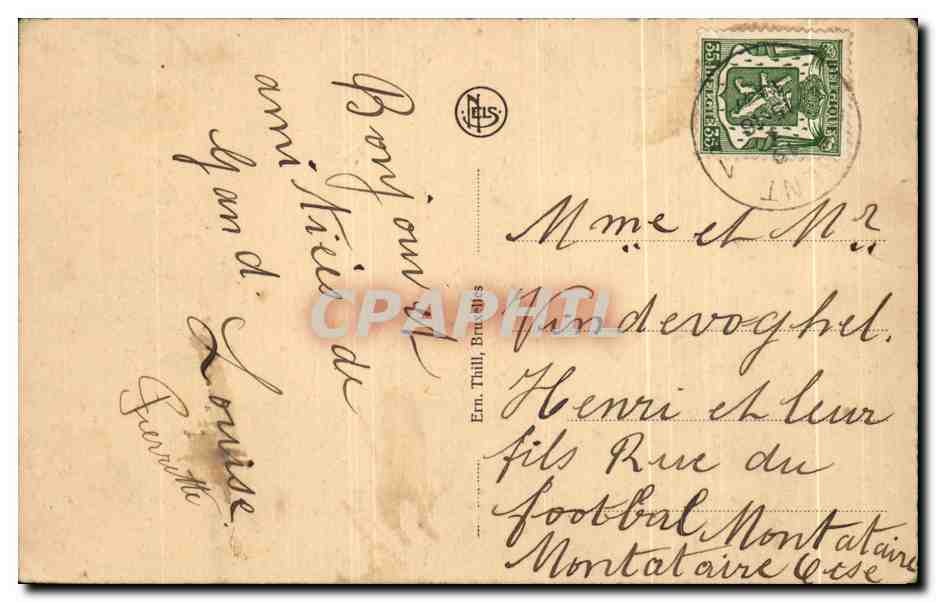 Bonjour et
amitiés de
Gand.
Louise.
Pierrette
NELS
Ern. Thill, Bruxelles
BELGIQUE
BELGIE
35c 35c
NT 1
CPAPHIL
Mme et Mr
Vindevoghel.
Henri et leur
fils Rue du
footbal Montataire
Montataire Oise